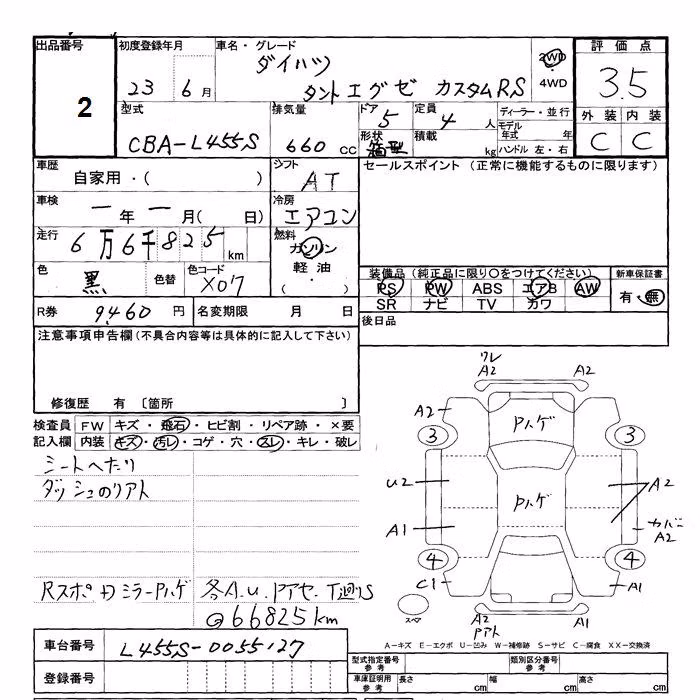 出品番号 初度登録年月 車名・グレード 評価点
2 23 6月 ダイハツ 2WD 3.5
タントエグゼ カスタムRS 4WD
型式 排気量 ドア 定員 ディーラー・並行 外装 内装
CBA-L455S 660cc 5 4人 モデル年式 年 C C
形状 積載 kg ハンドル 左・右
箱型
車歴 シフト セールスポイント (正常に機能するものに限ります)
自家用・( ) AT
車検 冷房
ー年ー月( 日) エアコン
走行 燃料
6万6千825km ガソリン
軽油
・
( )
色 色替 色コード 装備品 (純正品に限り○をつけてください) 新車保証書
黒 X07 PS PW ABS エアB AW 有・無
SR ナビ TV カワ
R券 9460円 名変期限 月 日 後日品
注意事項申告欄(不具合内容等は具体的に記入して下さい)
修復歴 有 〔箇所 〕
検査員 FW キズ・飛石・ヒビ割・リペア跡・×要
記入欄 内装 キズ・汚レ・コゲ・穴・スレ・キレ・破レ
シートヘたり
ダッシュのリアト
Rスポ カミラーPハゲ 各A.U.Pアセ.T廻りS
@66825km
ワレ
A2 A2
A2 Pハゲ
3 3
U2 Pハゲ A2
A1 カバー
A2
4 4
C1 A1
スペア A2 A2
Pアト
A-キズ E-エクボ U-凹み W-補修跡 S-サビ C-腐食 XX-交換済
車台番号 L455S-0055127
登録番号
型式指定番号 参考 類別区分番号 参考
車庫証明用 参考 長さ cm 幅 cm 高さ cm